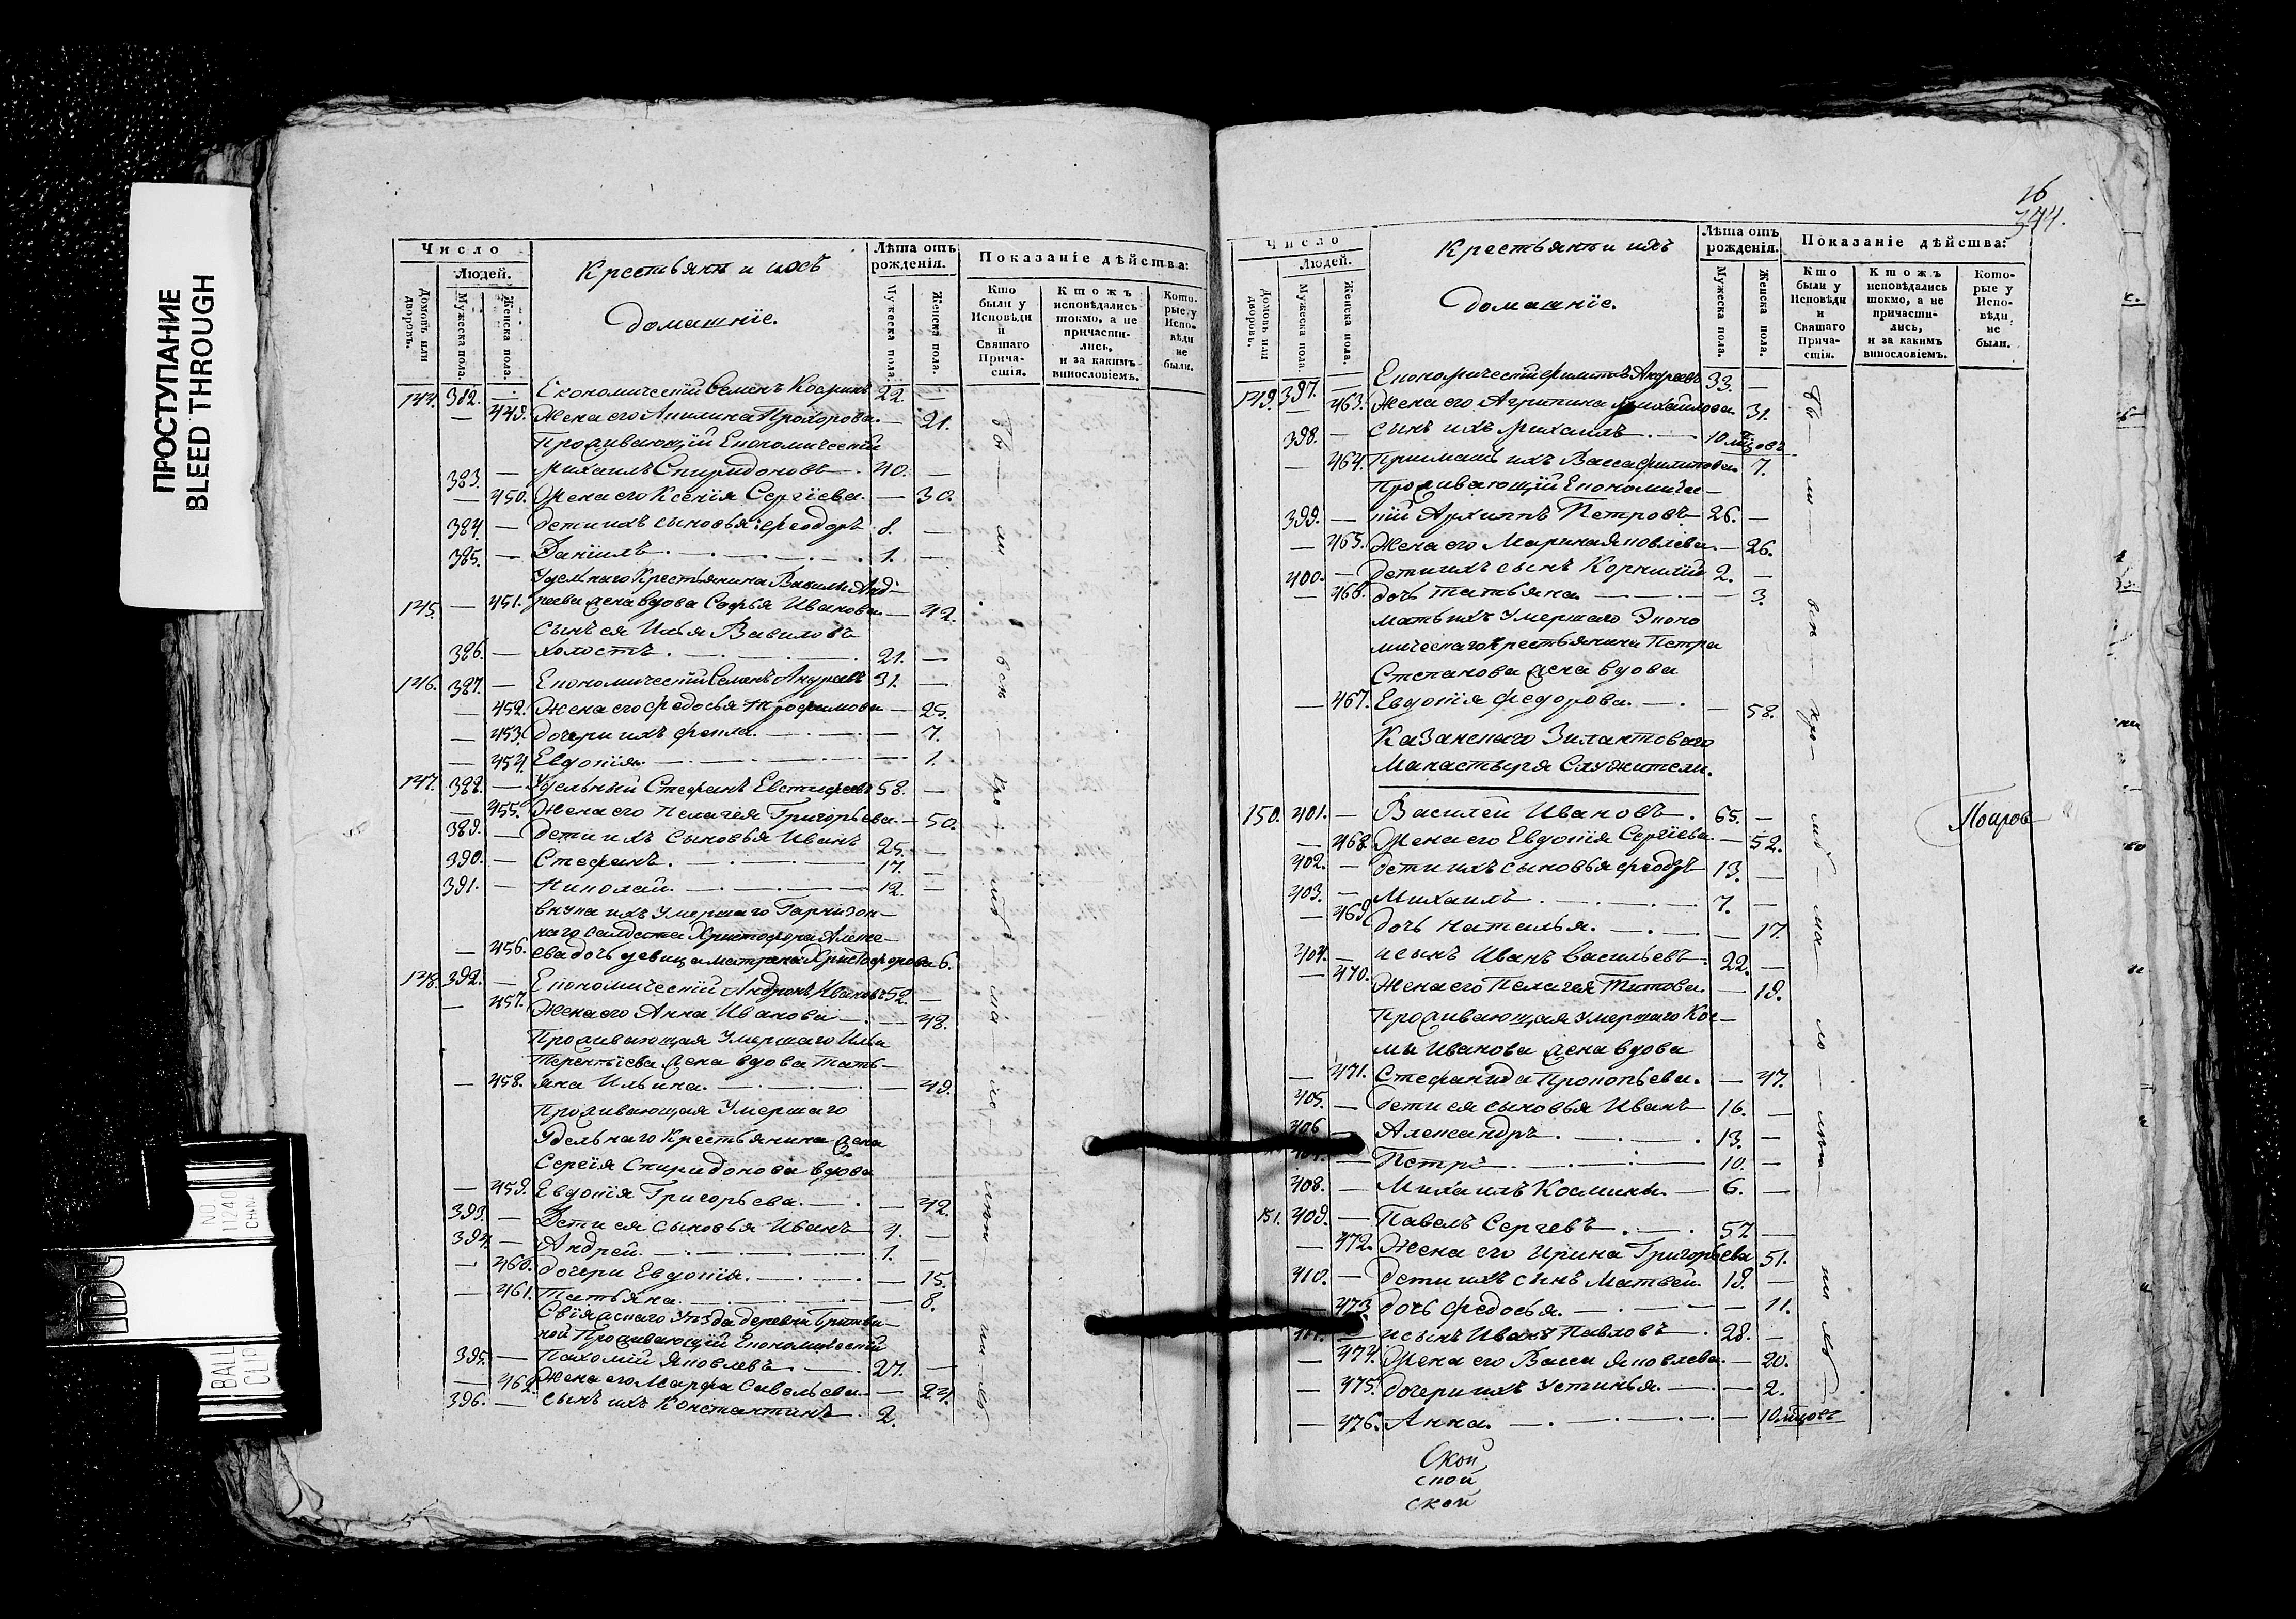 ПРОСТУПАНИЕ
BLEED THROUGH
Число
Людей.
Домовъ или дворовъ.
Мужеска пола.
Женска пола.
Крестьянъ и ихъ
Домашніе.
Лѣта отъ рожденія.
Мужеска пола.
Женска пола.
Показаніе дѣйства:
Кто были у Исповѣди и Святаго Причастія.
Ктожъ исповѣдались токмо, а не причастились, и за какимъ винословіемъ.
Которые у Исповѣди не были.
144. 382. — Економическій Семенъ 22. —
— 449. Жена его Акилина Прохорова — 21.
Проживающій Економическій
383. — Михаилъ Спиридоновъ 40. —
— 450. Жена его Ксенія Сергіева — 30.
384. — Дети ихъ сыновья: Феодоръ 8. —
385. — Даніилъ 1. —
Удельнаго Крестьянина Вавилы Анд-
145. — 451. реева жена вдова Софья Иванова — 42.
сынъ ея Илья Вавиловъ
386. — холостъ 21. —
146. 387. — Економическій Семенъ Андреевъ 31. —
— 452. Жена его Федосья Трофимова — 25.
— 453. Дочери ихъ Фекла — 7.
— 454. Евдокія — 1.
147. 388. — Удельный Стефанъ Евстифеевъ 58. —
— 455. Жена его Пелагея Григорьева — 50.
389. — Дети ихъ сыновья Иванъ 25. —
390. — Стефанъ 17. —
391. — Николай 12. —
внука ихъ умершаго Гарнизон-
наго салдата Христофора Алексе-
— 456. ева дочь девица Матрена Христофорова 6.
148. 392. — Економическій Андронъ Ивановъ 52. —
— 457. Жена его Анна Иванова — 48.
Проживающая Умершаго Ильи
Терентіева жена вдова Тать-
— 458. яна Ильина — 49.
Проживающая Умершаго
Удельнаго Крестьянина жена
Сергія Спиридонова вдова
— 459. Евдокія Григорьева — 42.
393. — Дети ея сыновья Иванъ 4. —
394. — Андрей 1. —
— 460. дочери Евдокія — 15.
— 461. Татьяна — 8.
Свіяжскаго Уезда деревни
Проживающій Економическій
395. — Пахомій Яковлевъ 27. —
— 462. Жена его Марфа Савельева — 24.
396. — сынъ ихъ Константинъ 2.
16
344.
Число
Людей.
Домовъ или дворовъ.
Мужеска пола.
Женска пола.
Крестьянъ и ихъ
Домашніе.
Лѣта отъ рожденія.
Мужеска пола.
Женска пола.
Показаніе дѣйства:
Кто были у Исповѣди и Святаго Причастія.
Ктожъ исповѣдались токмо, а не причастились, и за какимъ винословіемъ.
Которые у Исповѣди не были.
149. 397. — Економическій Филиппъ Андреевъ 33. —
— 463. Жена его Агрипина Михайлова 31.
398. — сынъ ихъ Михаилъ 10 мцовъ
— 464. Примашъ ихъ Васса Филипова 7.
Проживающій Економичес-
399. — кій Архиппъ Петровъ 26. —
— 465. Жена его Марина Яковлева — 26.
400. — Дети ихъ сынъ Корнилій 2. —
— 466. дочь Татьяна — 3.
мать ихъ Умершаго Эконо
мическаго Крестьянина Петра
Степанова жена вдова
— 467. Евдокія Федорова — 58.
Казанскаго Зилантоваго
Манастыря Служители.
150. 401. — Василей Ивановъ 65. —
— 468. Жена его Евдокія Сергіева — 52.
402. — Дети ихъ сыновья Феодоръ 13. —
403. — Михаилъ 7. —
— 469. дочь Наталья — 17.
404. — и сынъ Иванъ Васильевъ 22. —
— 470. Жена его Пелагея Титова — 19.
Проживающая Умершаго Кос-
мы Иванова жена вдова
— 471. Стефанида Прокопьева — 47.
405. — Дети ея сыновья Иванъ 16. —
406 — Александръ 13. —
— Петръ 10. —
408. — Михаилъ Космины 6. —
151. 409. — Павелъ Сергеевъ 57. —
— 472. Жена его Ирина Григорьева 51.
410. — Дети ихъ сынъ Матвей 19. —
473. дочь Федосья — 11.
— и сынъ Иванъ Павловъ 28. —
— 474. Жена его Васса Яковлева — 20.
— 475. дочери ихъ Устинья — 2.
— 476. Анна — 10 мцовъ
Покров
Скои
ской
ской
NO 1240 CHINA
BALL CLIP